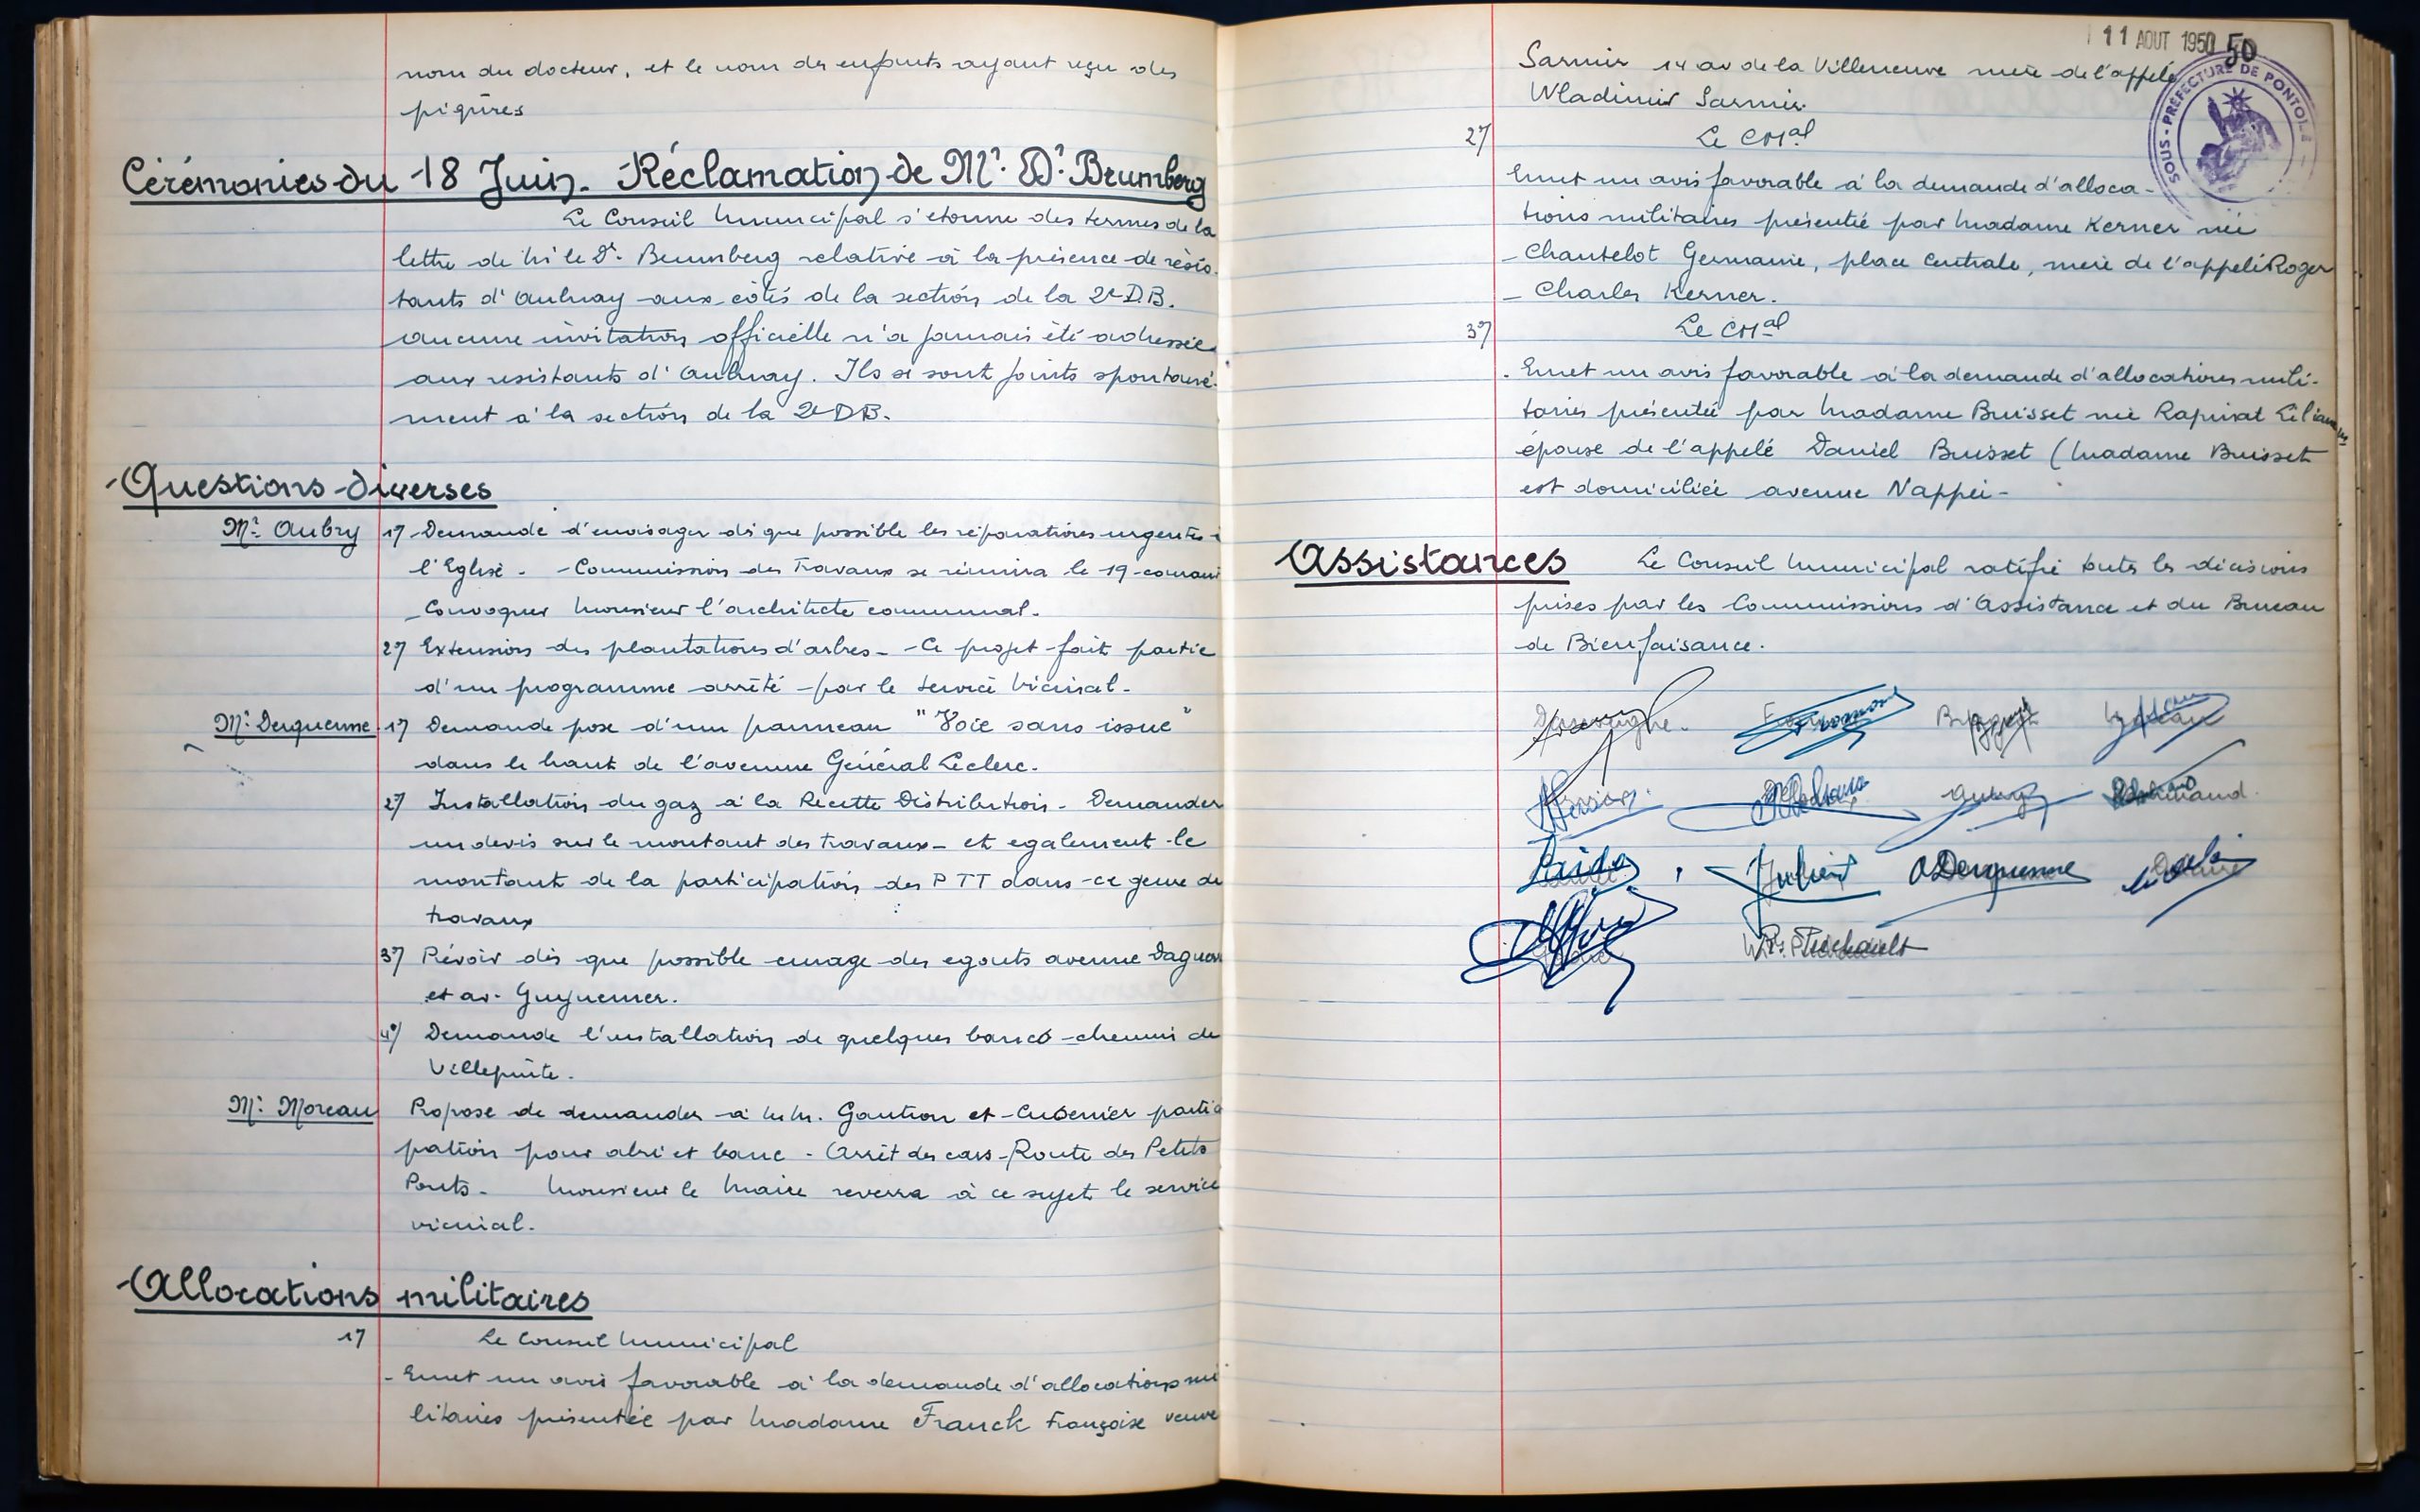 nom du docteur, et le nom des enfants ayant reçu des
piqûres
Cérémonies du 18 Juin. Réclamation de Mr. Dr. Brumberg
Le Conseil Municipal s'étonne des termes de la
lettre de Mr le Dr. Brumberg relative à la présence de résis-
tants d'Aulnay aux côtés de la section de la 2e D.B.
Aucune invitation officielle n'a jamais été adressée
aux résistants d'Aulnay. Ils se sont joints spontané-
ment à la section de la 2e DB.
Questions diverses
Mr. Aubry 1°/ Demande d'envisager dès que possible les réparations urgentes à
l'Eglise. - Commission des Travaux se réunira le 19 courant
Convoquer Monsieur l'architecte communal.
2°/ Extension des plantations d'arbres - Ce projet fait partie
d'un programme arrêté par le service Vicinal.
Mr. Derquenne 1°/ Demande pose d'un panneau "Voie sans issue"
dans le haut de l'avenue Général Leclerc.
2°/ Installation du gaz à la Recette Distribution - Demander
un devis sur le montant des travaux - et egalement le
montant de la participation des PTT dans ce genre de
travaux
3°/ Prévoir dès que possible curage des egouts avenue Daguerre
et av. Guynemer.
4°/ Demande l'installation de quelques bancs chemin de
Villepinte.
Mr. Moreau Propose de demander à M.M. Gaution et Cusenier partici
pation pour abri et banc - Arrêt des cars - Route des Petits
Ponts - Monsieur le Maire reverra à ce sujet le service
vicinal.
Allocations militaires
1°/ Le Conseil Municipal
- Emet un avis favorable à la demande d'allocations mi
litaires présentée par Madame Franck Françoise veuve
11 AOUT 1950 50
SOUS-PRÉFECTURE DE PONTOISE
Sarmir 14 av de la Villeneuve mère de l'appelé
Wladimir Sarmir.
2°/ Le CMal
Emet un avis favorable à la demande d'alloca-
tions militaires présentée par Madame Kerner née
- Chantelot Germaine, place Centrale, mère de l'appelé Roger
- Charles Kerner.
3°/ Le CMal
. Emet un avis favorable à la demande d'allocations mili-
taires présentée par Madame Buisset née Rapinat Liliane
épouse de l'appelé Daniel Buisset (Madame Buisset
est domiciliée avenue Nappéi -
Assistances Le Conseil Municipal ratifie toutes les décisions
prises par les Commissions d'Assistance et du Bureau
de Bienfaisance.
Aubry
ADerquenne